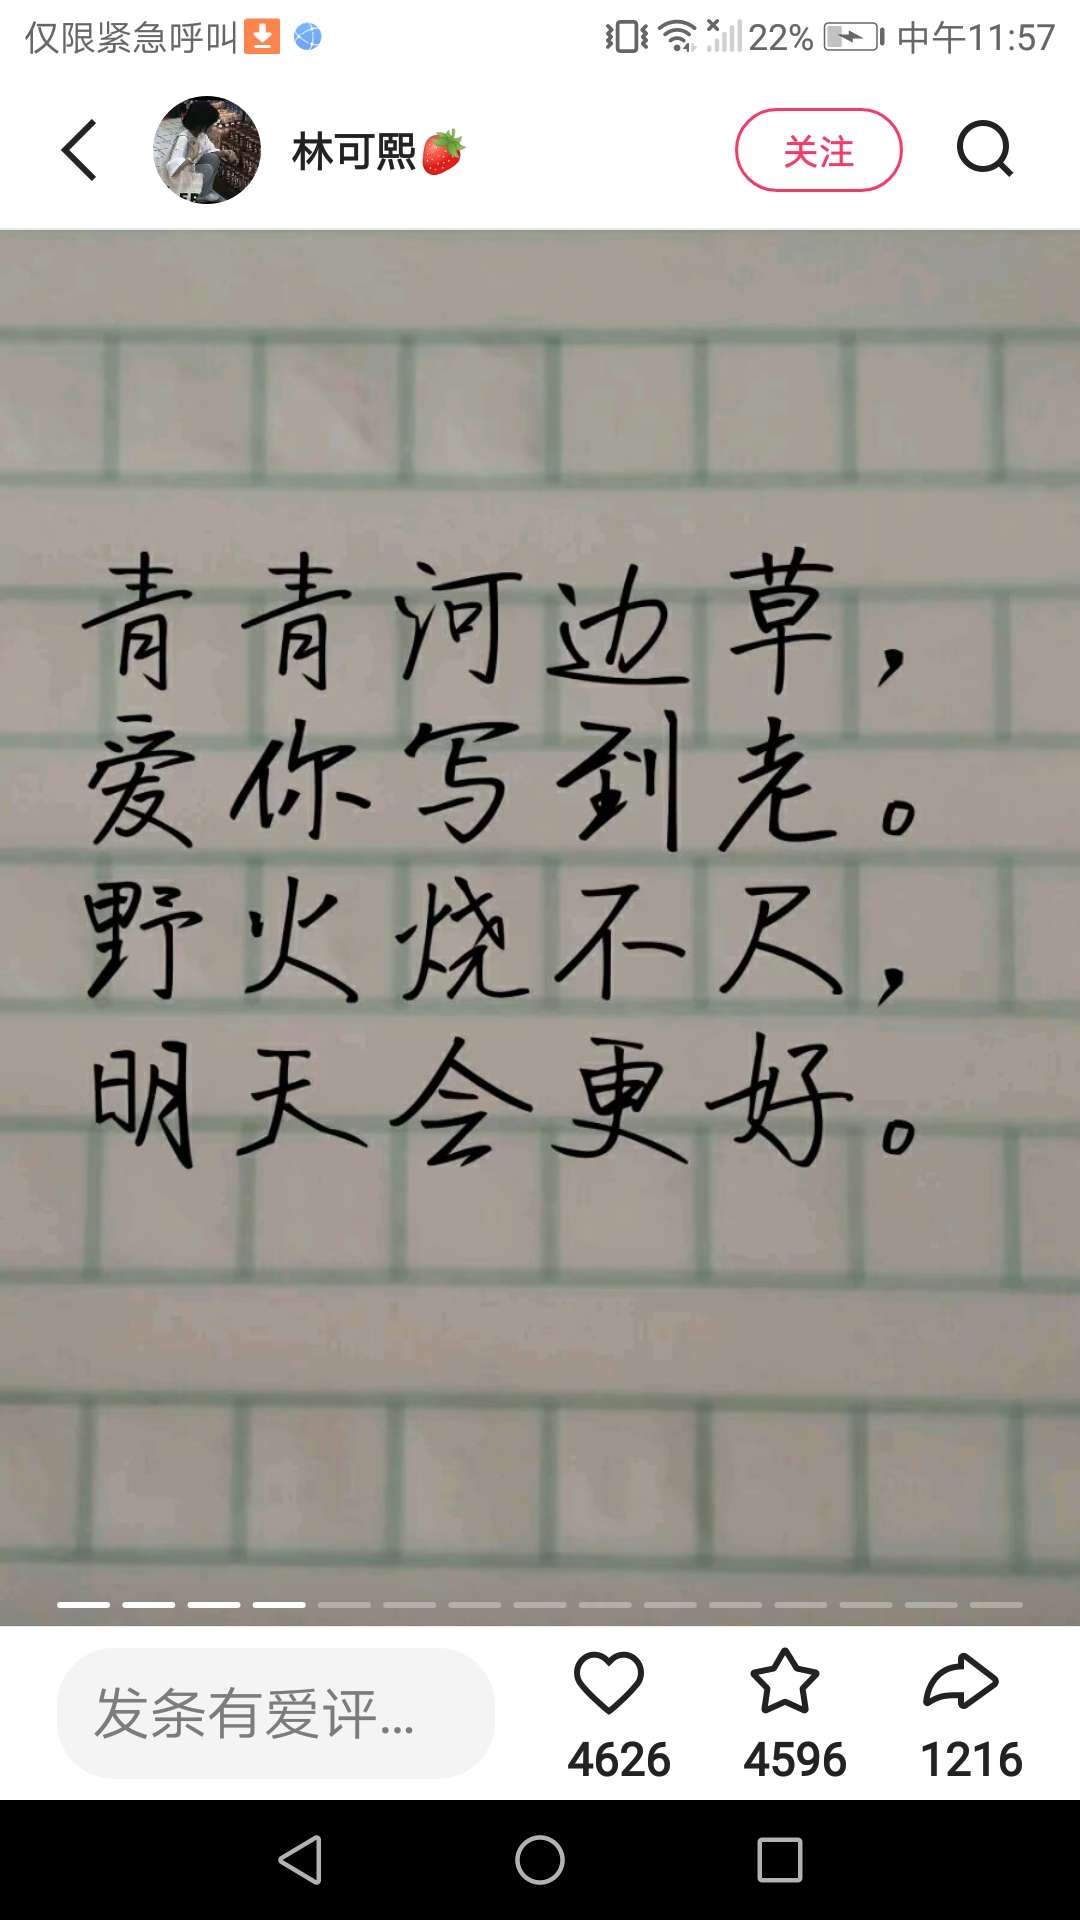 仅限紧急呼叫
22% 中午11:57
林可熙🍓
关注
青青河边草，
爱你写到老。
野火烧不尺，
明天会更好。
发条有爱评...
4626 4596 1216